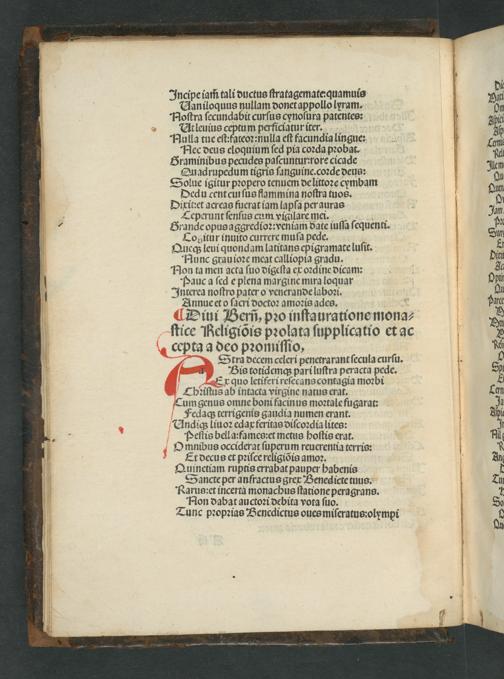 Incipe iam̃ tali ductus stratagemate: quamuis
Vaniloquus nullam donet appollo lyram.
Nostra secundabit cursus cynosura patentes:
Ut leuius ceptum perficiatur iter.
Nulla tue est: fateor: nulla est facundia lingue:
Nec deus eloquium sed pia corda probat.
Graminibus pecudes pascuntur: rore cicade
Quadrupedum tigris sanguine. corde deus:
Solue igitur propero tenuem de littore cymbam
Dedu cent cursus flammina nostra tuos.
Dixit: et aereas fuerat iam lapsa per auras
Ceperunt sensus cum vigilare mei.
Grande opus aggredior: veniam date iussa sequenti.
Cogitur inuito currere musa pede.
Queq; leui quondam latitans epigramate lusit.
Nunc grauiore meat calliopia gradu.
Non ta men acta suo digesta ex ordine dicam:
Pauc a sed e plena margine mira loquar
Interea nostro pater o venerande labori.
Annue et o sacri doctor amoris ades.
¶Diui Berñ, pro instauratione mona⸗
stice Religiõis prolata supplicatio et ac
cepta a deo promissio,
A Stra decem celeri penetrarant secula cursu.
a Bis totidemq; pari lustra peracta pede.
Ex quo letiferi resecans contagia morbi
Christus ab intacta virgine natus erat.
Cum genus omne boni facinus mortale fugarat:
Fedaq; terrigenis gaudia numen erant.
Undiq; liuor edax feritas discordia lites:
Pestis bella: fames: et metus hostis erat.
Omnibus occiderat superum reuerentia terris:
Et decus et prisce religiõis amor.
Quinetiam ruptis errabat pauper habenis
Sancte per anfractus grex Benedicte tuus.
Rarus: et incerta monachus statione peragrans.
Non dabat auctori debita vota suo.
Tunc proprias Benedictus oues miseratus: olympi